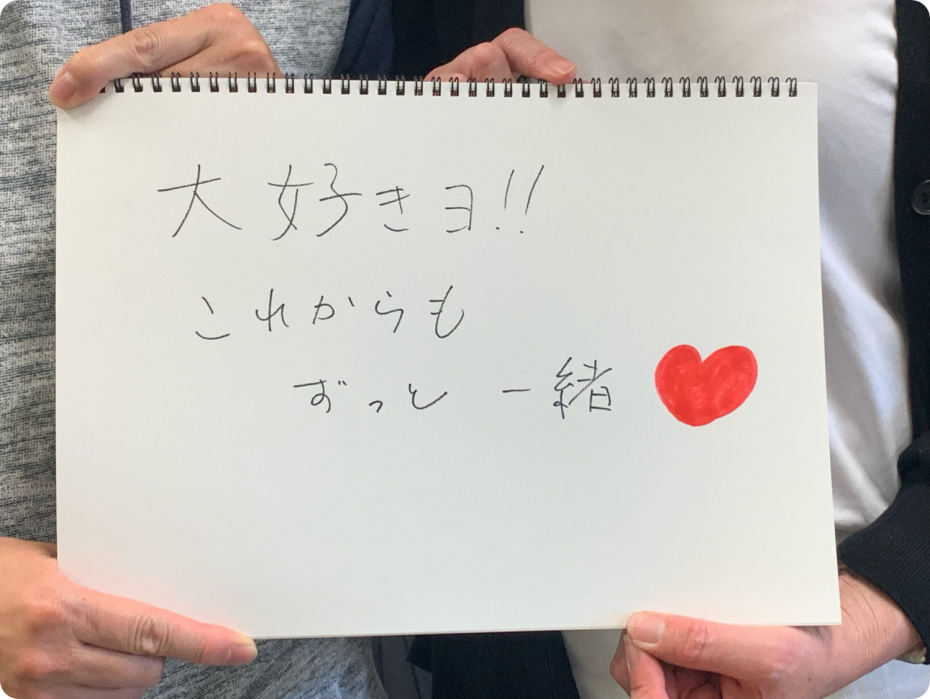 大好きヨ!!
これからも
ずっと一緒